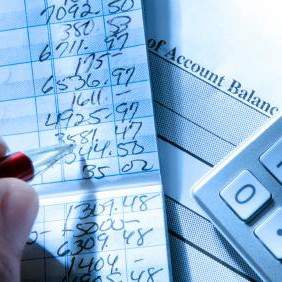 7092 50
381 53
6711 97
175 -
6536 97
1611 -
4925 97
3581 47
1344.50
35 02
1309.48
5000 -
6309 48
1404 -
905 48
of Account Balanc
0
1